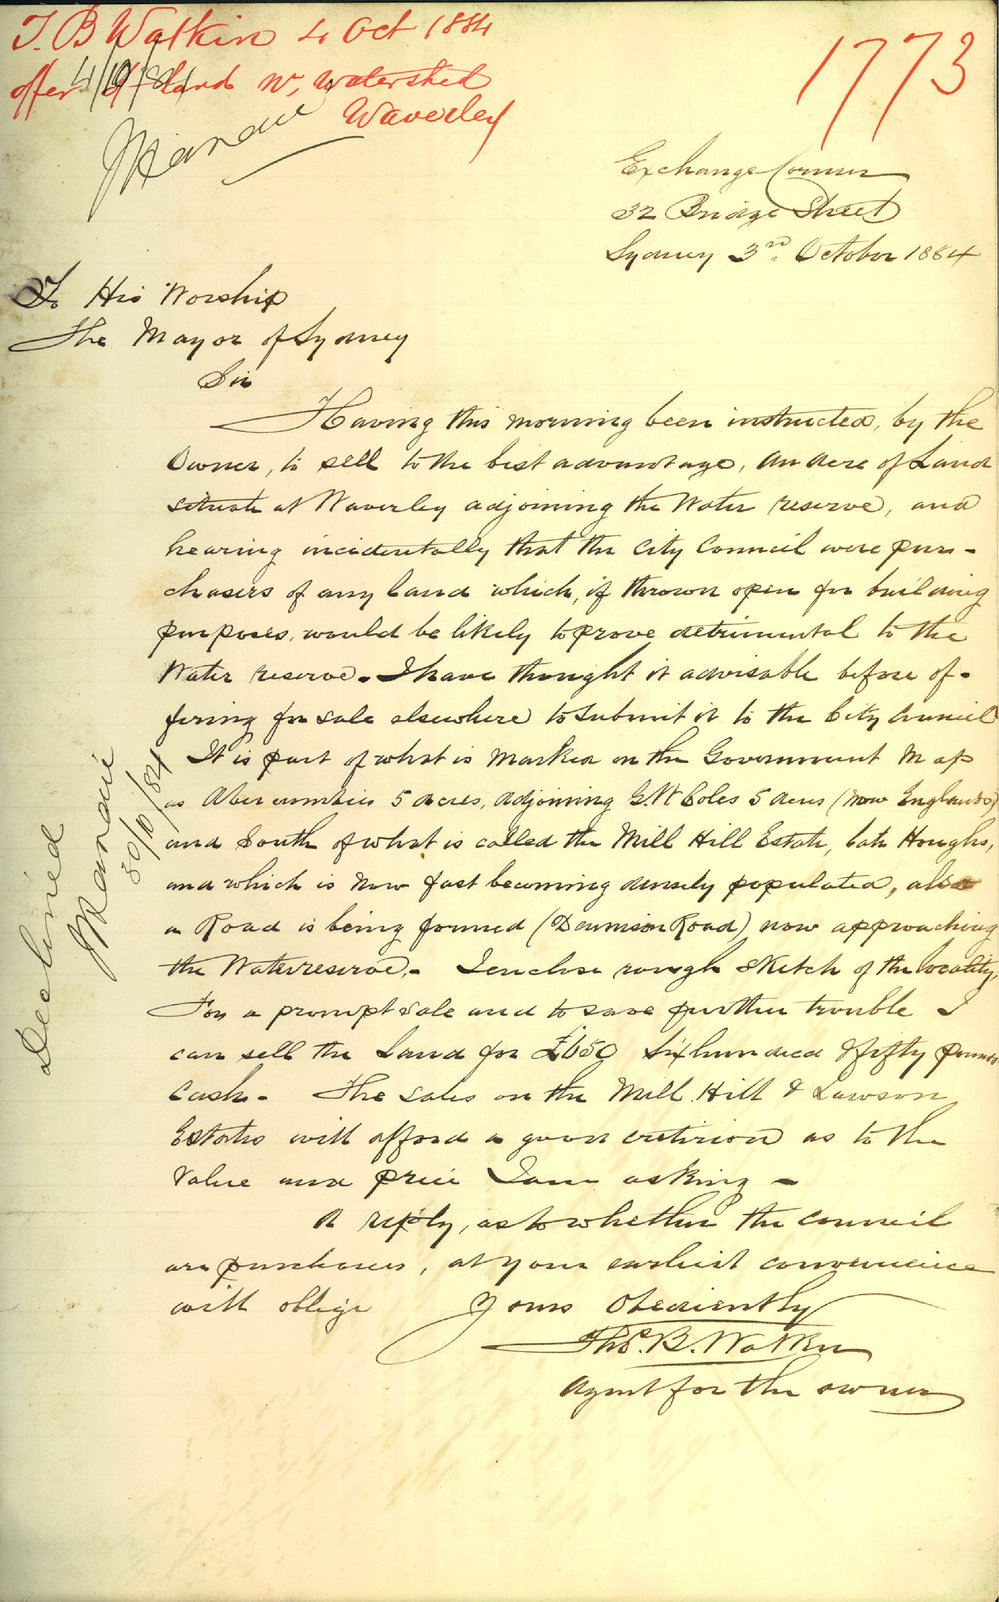 T. B Watkin 4 Oct 1884
offer of land nr, watershed
Waverley
4/10/84
1773
Exchange Corner
32 Bridge Street
Sydney 3rd. October 1884
To His Worship
The Mayor of Sydney
Sir
Having this morning been instructed, by the
Owner, to sell to the best advantage, an acre of Land
situate at Waverley adjoining the Water reserve, and
hearing incidentally that the City Council were pur-
chasers of any land which, if thrown open for building
purposes, would be likely to prove detrimental to the
Water reserve. I have thought it advisable before of-
fering for sale elsewhere to submit it to the City Council
It is part of what is marked on the Government Map
as Abercrombies 5 acres, adjoining G. W Coles 5 acres (now Englands)
and South of what is called the Mill Hill Estate, late Houghs,
and which is now fast becoming densely populated, also
a Road is being formed (Dennison Road) now approaching
the Water reserve. - I enclose rough sketch of the locality,
For a prompt sale and to save further trouble I
can sell the Land for £650 Six hundred & fifty pounds
Cash - The sales on the Mill Hill & Lawson
Estates will afford a good criterion as to the
Value and price I am asking -
A reply, as to whether the council
are purchasers, at your earliest convenience
will oblige Yours Obediently
Thos. B. Watkin
Agent for the owner
Declined
30/10/84